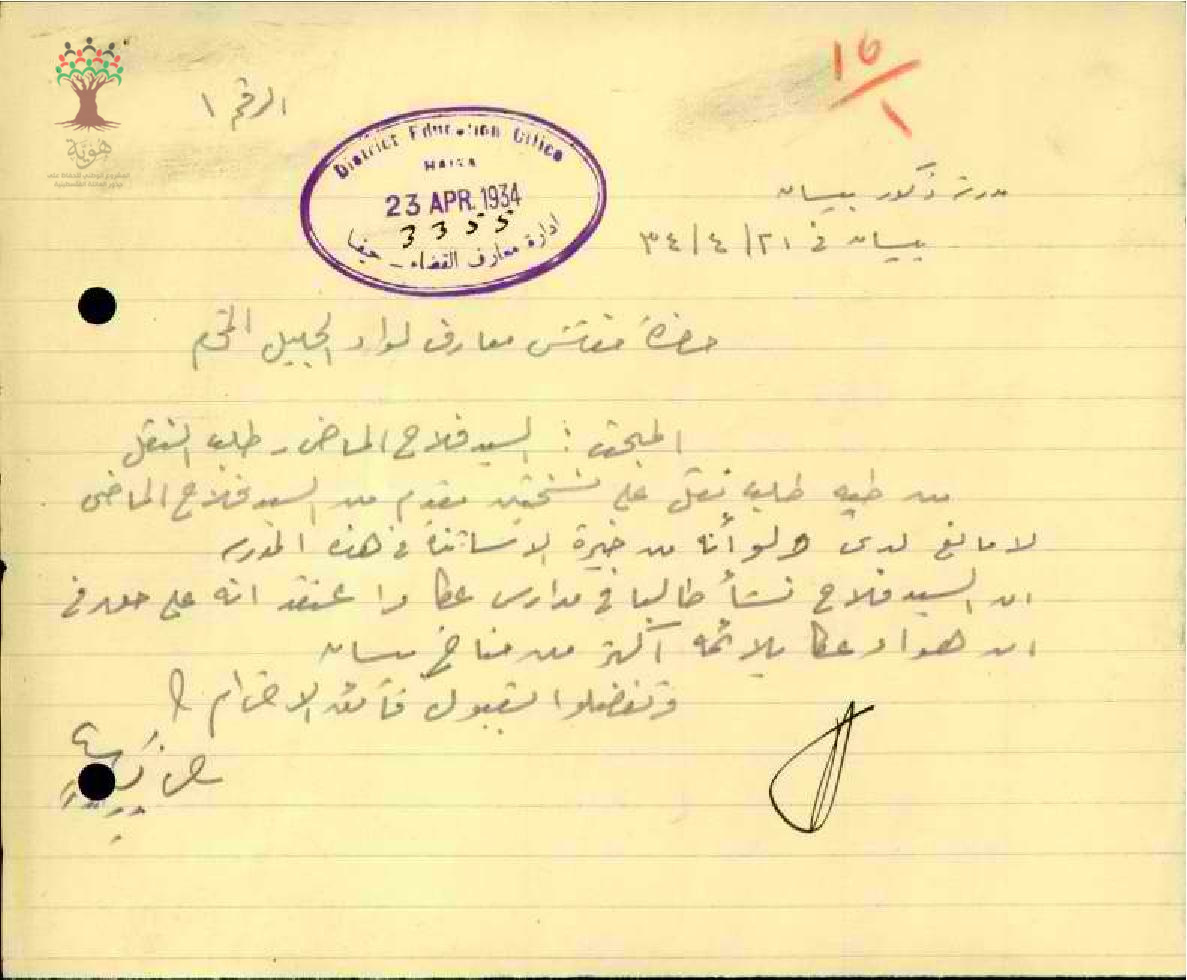 16/1
الرقم ١
هوية
المشروع الوطني للحفاظ على
جذور العائلة الفلسطينية
District Education Office
HAIFA
23 APR. 1934
3355
ادارة معارف القضاء - حيفا
مدرسة ذكور بيسان
بيسان في ٢١/٤/٣٤
حضرة مفتش معارف لواء الجليل المحترم
المبحث : السيد فلاح الماضي وطلب النقل
من طيه طلب نقل على نسختين مقدم من السيد فلاح الماضي
لا مانع لدى ولو أنه من خيرة الاساتذة في هذه المدرسه
ان السيد فلاح نشأ طالبا في مدارس عكا واعتقد انه على حق في
ان هواء عكا يلائمه أكثر من مناخ بيسان
وتفضلوا بقبول فائق الاحترام